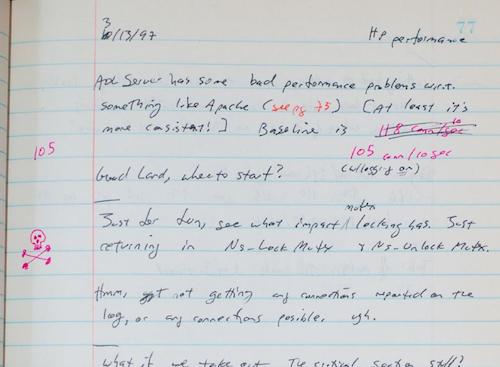 77
3/13/97 HP performance
AOL Server has some bad performance problems w.r.t.
something like Apache (see pg 75) [At least it's
more consistent!] Baseline is 118 conn/sec
10
105
105 conn/10sec
Good Lord, where to start? (w/logging on)
mutex
Just for fun, see what impact locking has. Just
returning in Ns_LockMutex & Ns_UnlockMutex.
Hmm, not getting any connections reported on the
log, or any connections posible. ugh.
What if we take out the critical section stuff?